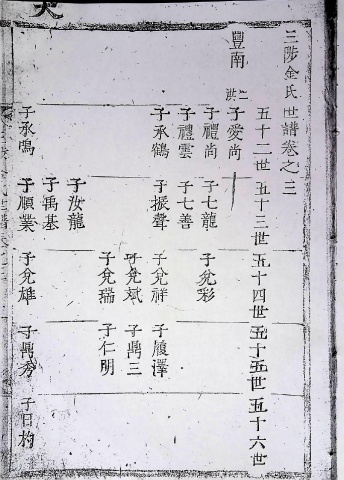 三陟金氏世譜卷之三
五十二世 五十三世 五十四世 五十五世 五十六世
豐南
二
洪
子愛尚
子禮尚 子七龍 子允彩
子禮雲 子七善
子承鶴 子振聲 子允祥 子履澤
子允斌 子鼎三
子允瑞 子仁明
子汝龍
子禹基
子承鳴 子順業 子允雄 子鼎秀 子日杓